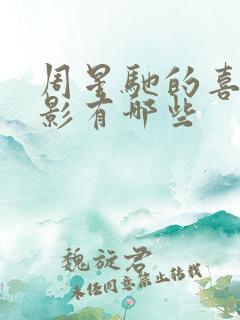 周星馳的喜
影有哪些
魏旋君
未经同意禁止转载